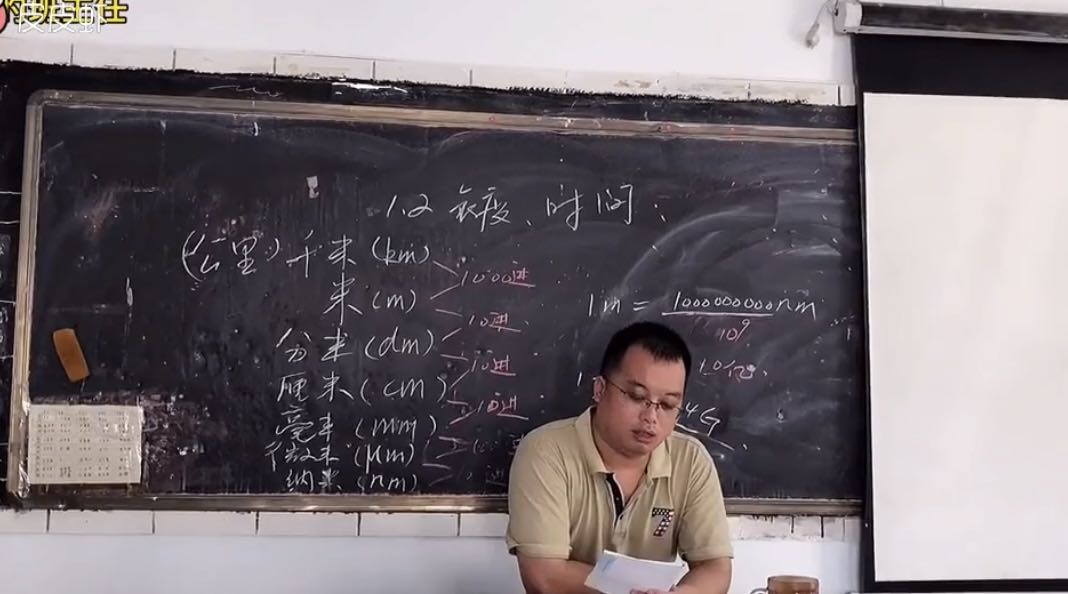 皮皮虾
1.2 长度、时间:
(公里)千米(km)
1000进
米(m)
10进
分米(dm)
10进
厘米(cm)
10进
毫米(mm)
微米(μm)
纳米(nm)
1m = 1000000000nm
10⁹
10亿.
4G
7